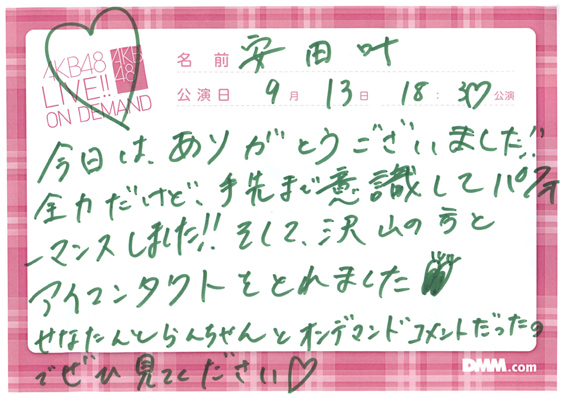 AKB48
LIVE!!
ON DEMAND
AKB
48
名前 安田叶
公演日 9月 13日 18:30♡公演
今日は、ありがとうございました!!
全力だけど、手先まで意識してパフォ
ーマンスしました!! そして、沢山の方と
アイコンタクトをとれました
せなたんとらんちゃんとオンデマンドコメントだったの
でぜひ見てください♡
DMM.com